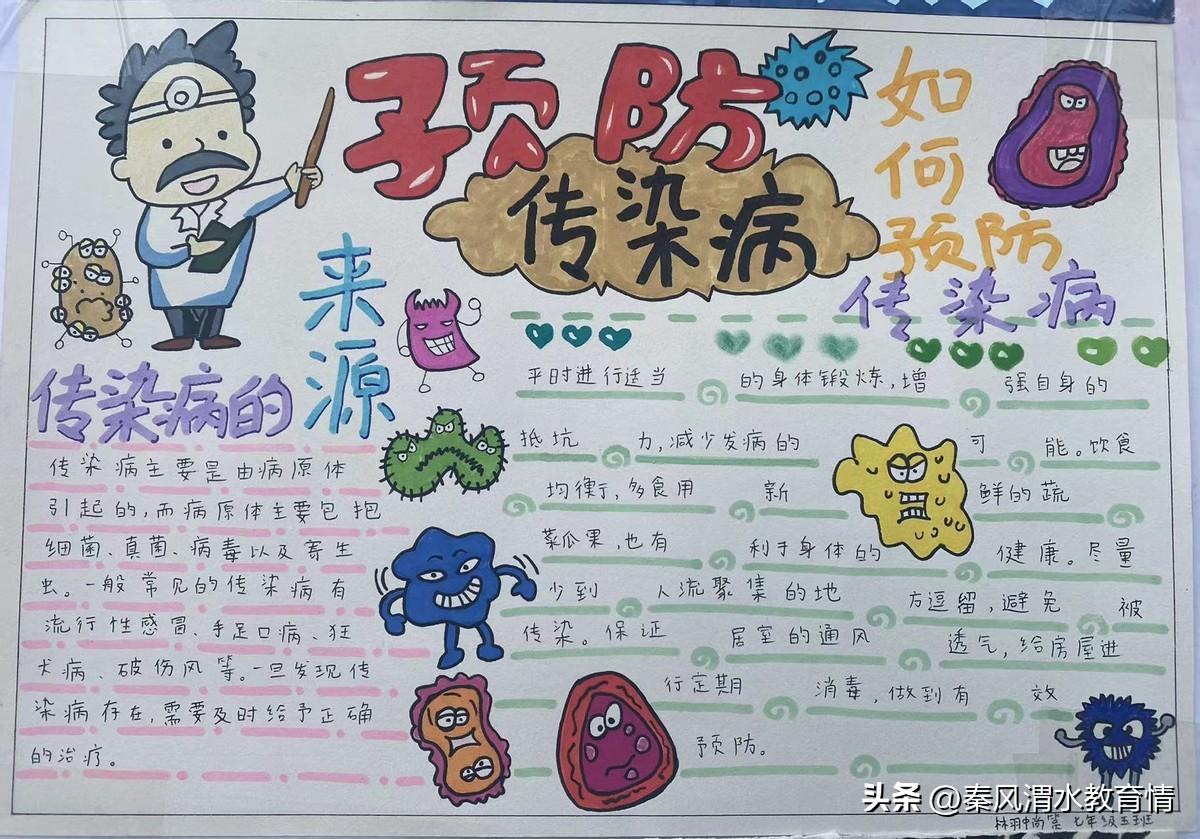 预防
传染病
如何
预防
传染病
来源
传染病的
传染病主要是由病原体
引起的,而病原体主要包抱
细菌、真菌、病毒以及寄生
虫。一般常见的传染病有
流行性感冒、手足口病、狂
犬病、破伤风等。一旦发现传
染病存在,需要及时给予正确
的治疗。
平时进行适当的身体锻炼,增强自身的
抵抗力,减少发病的可能。饮食
均衡,多食用新鲜的蔬
菜瓜果,也有利于身体的健康。尽量
少到人流聚集的地方逗留,避免被
传染。保证居室的通风透气,给房屋进
行定期消毒,做到有效
预防。
头条 @秦风渭水教育情
七年级五班